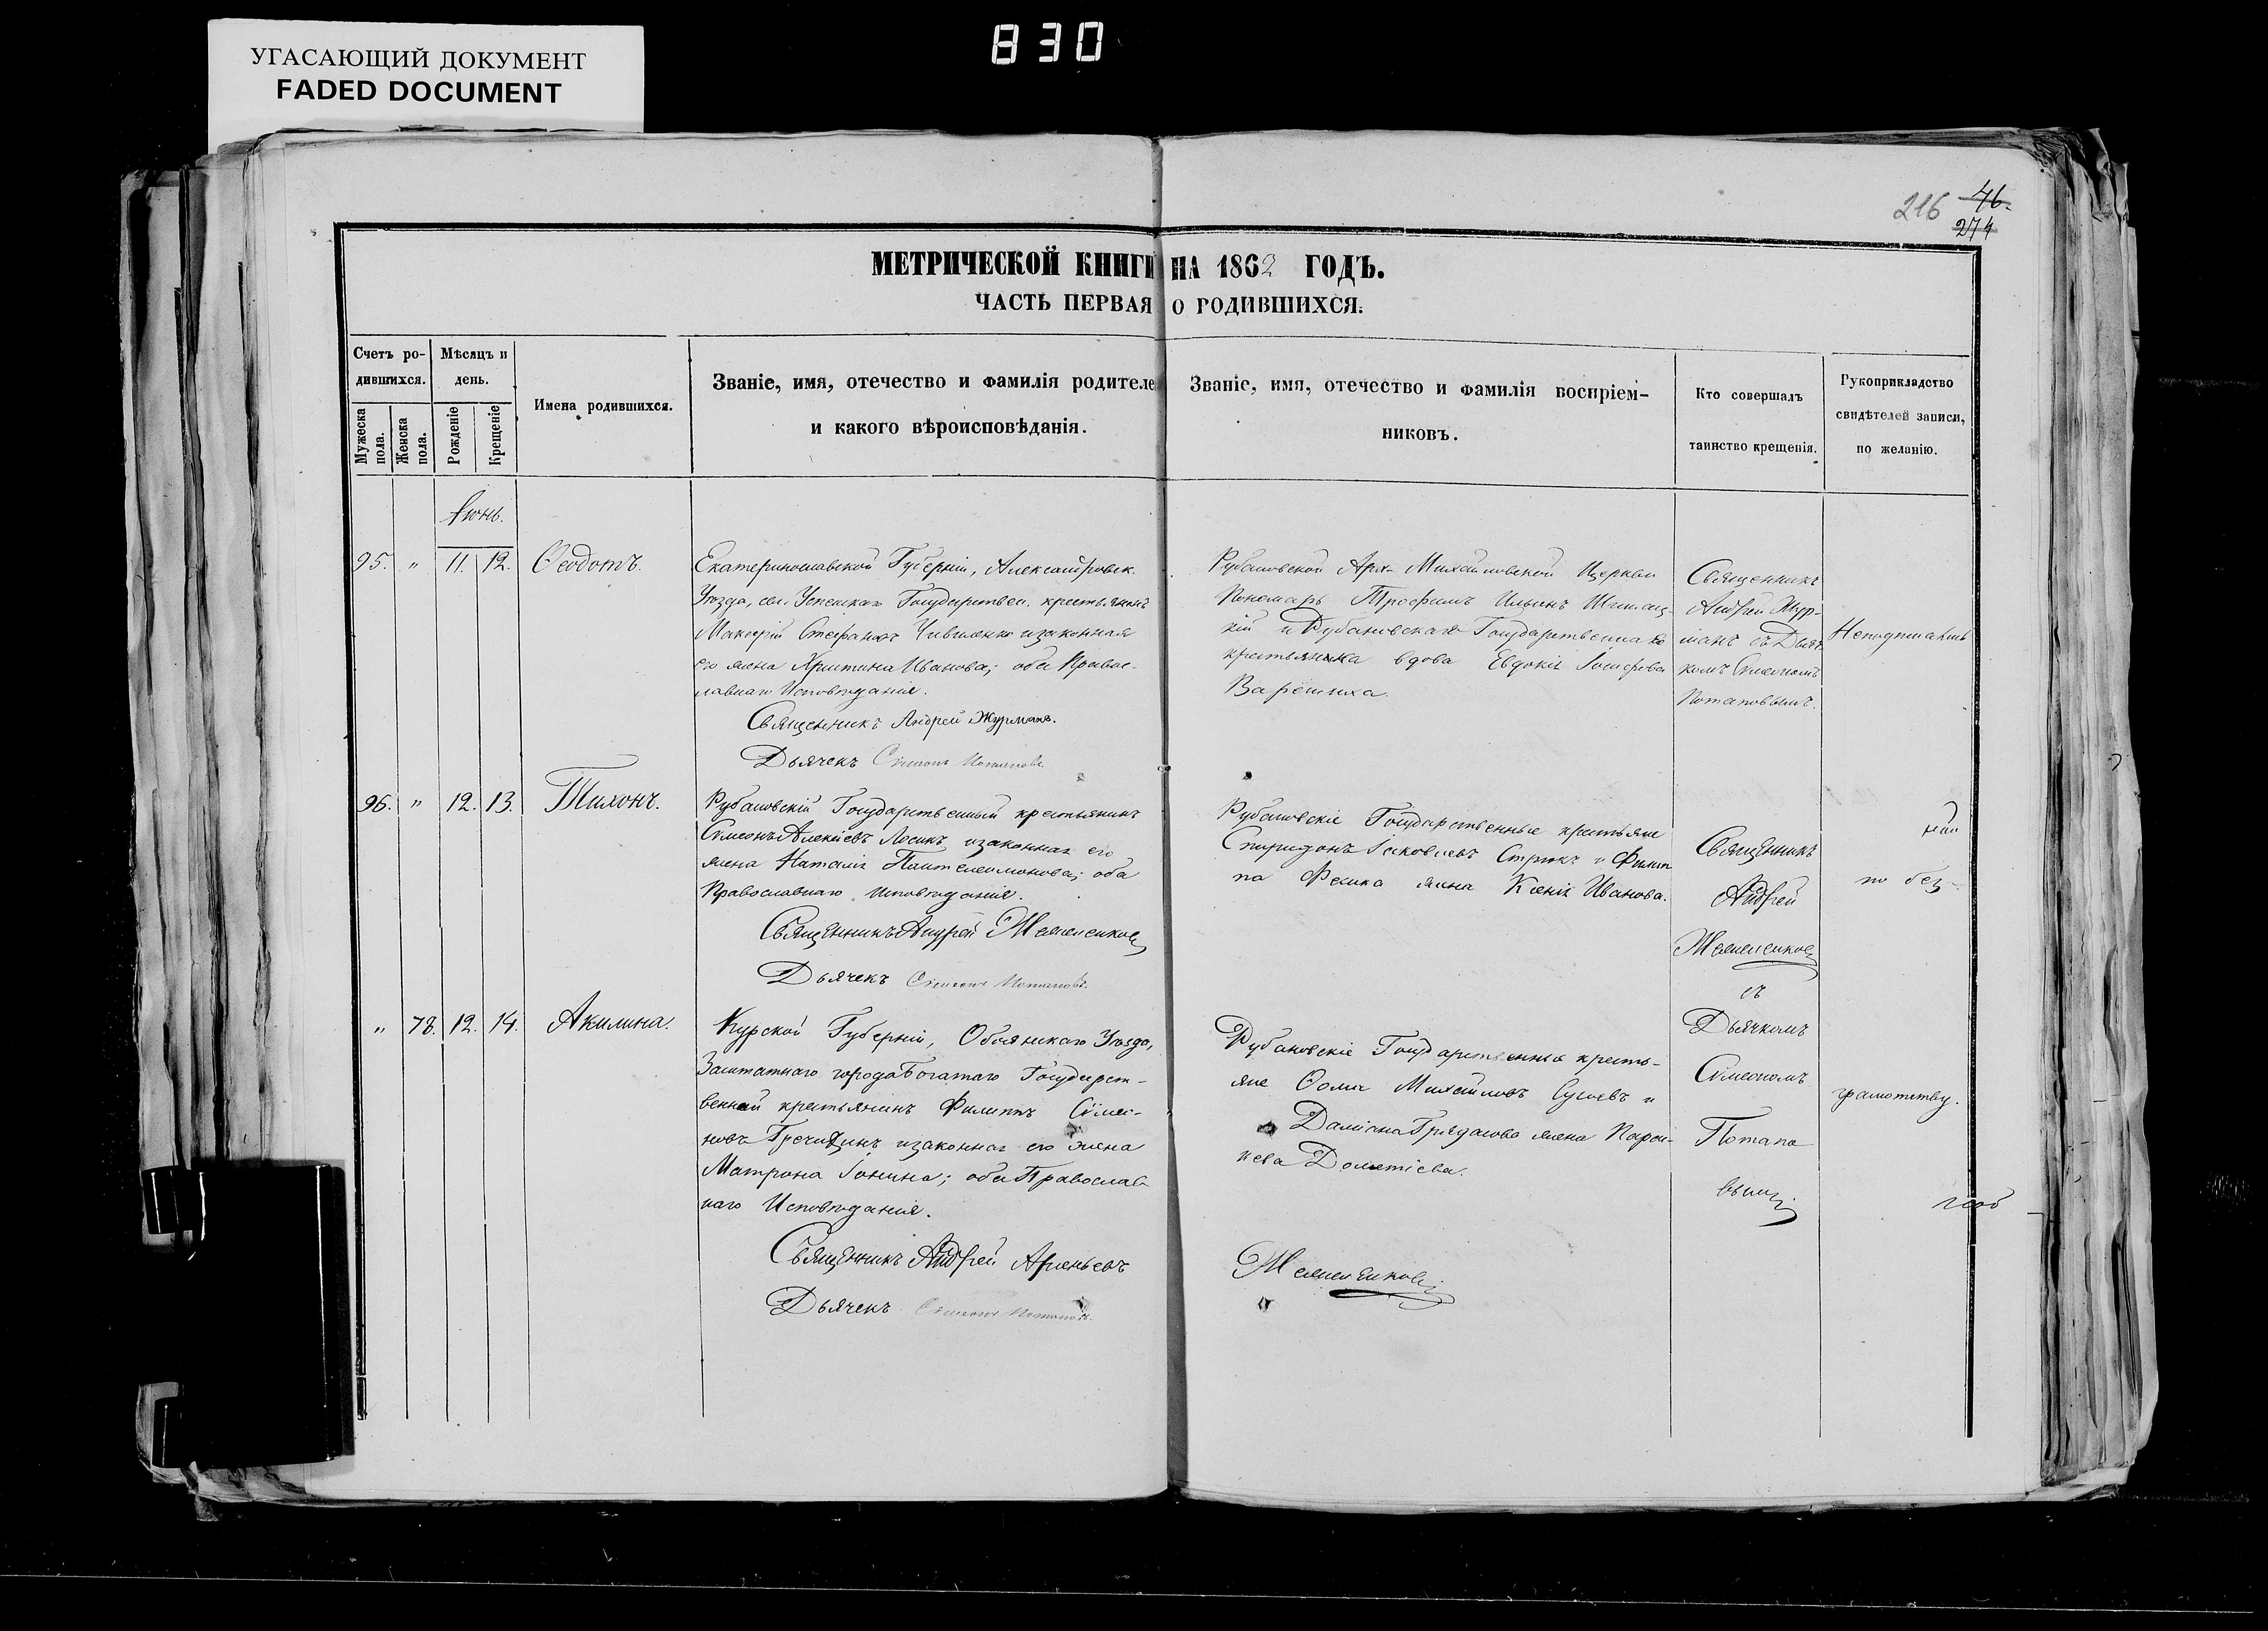 УГАСАЮЩИЙ ДОКУМЕНТ
FADED DOCUMENT
830
216 46.
274
МЕТРИЧЕСКОЙ КНИГИ НА 1862 ГОДЪ.
ЧАСТЬ ПЕРВАЯ О РОДИВШИХСЯ.
Счетъ ро-
дившихся.
Мужеска пола.
Женска пола.
Мѣсяцъ и
день.
Рожденіе
Крещеніе
Имена родившихся.
Званіе, имя, отечество и фамилія родителе
и какого вѣроисповѣданія.
Званіе, имя, отечество и фамилія воспріем-
никовъ.
Кто совершалъ
таинство крещенія.
Рукоприкладство
свидѣтелей записи,
по желанію.
Іюнь.
95. " 11. 12. Ѳеодотъ.
Екатеринославской Губерніи, Александровск.
Уѣзда, сел. Успенскаго Государствен. крестьянинъ
Стефановъ изаконная
его жена Христина Иванова; оба Правос-
лавнаго Исповѣданія.
Священникъ Андрей Журманъ.
Дьячекъ Сѵмеонъ Потаповъ.
Рубановской Арх- Михайловской Церкви
Пономарь Трофимъ Ильинъ
кій и Рубановская Государственная
крестьянка вдова Евдокія Іосифова
Священникъ
Андрей Жур-
манъ съ Дьяч-
комъ Сѵмеономъ
Потаповымъ.
96. " 12. 13. Тихонъ.
Рубановскій Государственный крестьянинъ
Сѵмеонъ Алексіевъ Лосикъ изаконная его
жена Наталія Пантелеимонова; оба
Православнаго Исповѣданія.
Священникъ Андрей
Дьячекъ Сѵмеонъ Потаповъ.
Рубановскіе Государственные крестьяне
Спиридонъ Іаковлевъ и Филип
па жена Ксенія Иванова.
Священникъ
Андрей
съ
Дьячкомъ
Сѵмеономъ
Потапо
вымъ
по без-
" 78. 12. 14. Акилина.
Курской Губерніи, Обоянскаго Уѣзда,
Заштатнаго города Богатаго Государст-
венный крестьянинъ Филиппъ Сѵмео-
новъ изаконная его жена
Матрона Іонина; оба Православ-
наго Исповѣданія.
Священникъ Андрей Арсеньевъ
Дьячекъ Сѵмеонъ Потаповъ.
Рубановскіе Государственные кресть-
яне Ѳома Михайловъ и
Даміана жена
Дометіева.
грамотству.